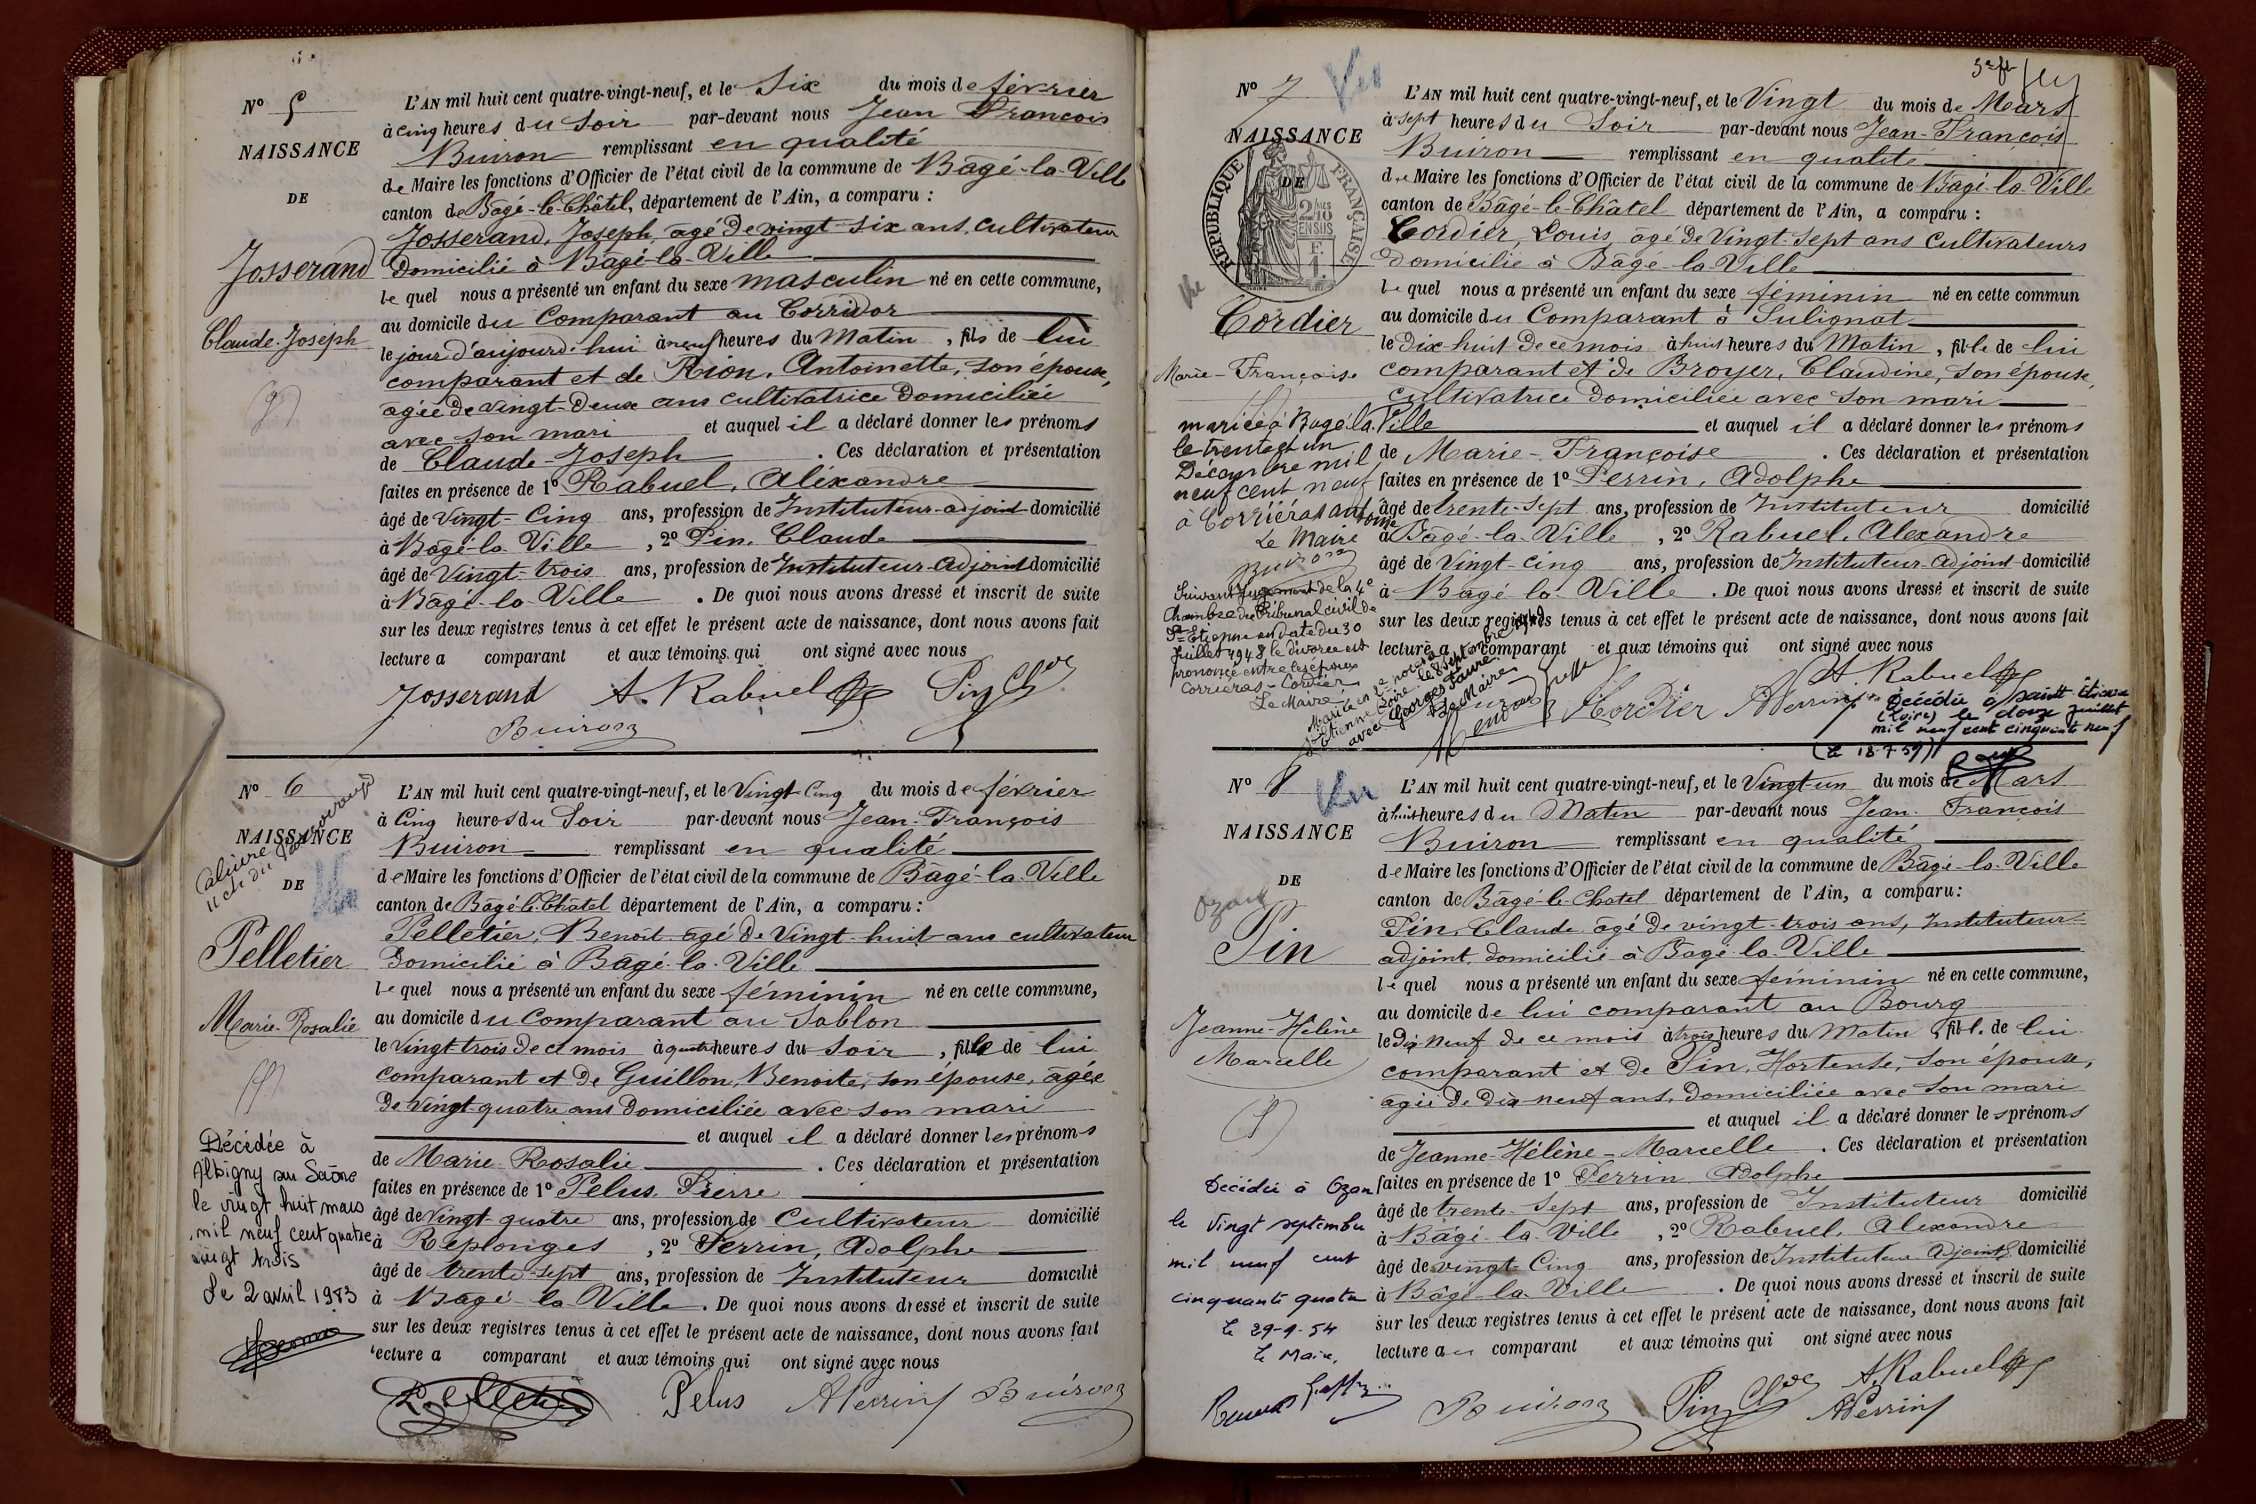 Nº 5
NAISSANCE
DE
Josserand
Claude-Joseph
L'AN mil huit cent quatre-vingt-neuf, et le Six du mois de février
à cinq heures du Soir par-devant nous Jean François
Buiron remplissant en qualité
de Maire les fonctions d'Officier de l'état civil de la commune de Bâgé-la-Ville
canton de Bâgé-le-Châtel, département de l'Ain, a comparu :
Josserand, Joseph, agé de vingt-six ans, cultivateur
domicilié à Bâgé-la-Ville
le quel nous a présenté un enfant du sexe masculin né en cette commune,
au domicile du Comparant au Corridor
le jour d'aujourd'hui à neuf heures du Matin, fils de lui
comparant et de Rion, Antoinette, son épouse,
agée de vingt-deux ans cultivatrice domiciliée
avec son mari et auquel il a déclaré donner les prénoms
de Claude Joseph . Ces déclaration et présentation
faites en présence de 1º Rabuel, Aléxandre
âgé de Vingt-Cinq ans, profession de Instituteur-adjoint domicilié
à Bâgé-la-Ville , 2º Pin, Claude
âgé de Vingt-trois ans, profession de Instituteur-Adjoint domicilié
à Bâgé-la-Ville . De quoi nous avons dressé et inscrit de suite
sur les deux registres tenus à cet effet le présent acte de naissance, dont nous avons fait
lecture a comparant et aux témoins qui ont signé avec nous
Josserand A. Rabuel Pin Cde
Buiron
Nº 6
NAISSANCE
DE
Pelletier
Marie-Rosalie
Décédée à
Albigny sur Saône
le vingt huit mars
mil neuf cent quatre
vingt trois
Le 2 avril 1983
L'AN mil huit cent quatre-vingt-neuf, et le Vingt-Cinq du mois de février
à Cinq heures du Soir par-devant nous Jean-François
Buiron remplissant en qualité
de Maire les fonctions d'Officier de l'état civil de la commune de Bâgé-la-Ville
canton de Bâgé-le-Châtel département de l'Ain, a comparu :
Pelletier, Benoît agé de Vingt-huit ans cultivateur
Domicilié à Bâgé-la-Ville
le quel nous a présenté un enfant du sexe féminin né en cette commune,
au domicile du Comparant au Sablon
le vingt-trois de ce mois à quatre heures du Soir, fille de lui
comparant et de Guillon, Benoite, son épouse, âgée
de Vingt-quatre ans domiciliée avec son mari
et auquel il a déclaré donner les prénoms
de Marie Rosalie . Ces déclaration et présentation
faites en présence de 1º Pelus Pierre
âgé de Vingt quatre ans, profession de Cultivateur domicilié
à Replonges , 2º Perrin, Adolphe
âgé de trente-sept ans, profession de Instituteur domicilié
à Bâgé-la-Ville . De quoi nous avons dressé et inscrit de suite
sur les deux registres tenus à cet effet le présent acte de naissance, dont nous avons fait
lecture a comparant et aux témoins qui ont signé avec nous
Pelletier Pelus APerrin Buiron
Nº 7
NAISSANCE
DE
RÉPUBLIQUE FRANÇAISE
Cordier
Marie-Françoise
mariée à Bagé-la-Ville
le trente et un
Décembre mil
neuf cent neuf
à Corriéras Antoine
Le Maire
Buiron
Suivant jugement de la 4e
Chambre du Tribunal civil de
St-Etienne en date du 30
Juillet 1948 le divorce est
prononcé entre les époux
Corriéras - Cordier
Le Maire
L'AN mil huit cent quatre-vingt-neuf, et le Vingt du mois de Mars
à sept heures du Soir par-devant nous Jean-François
Buiron remplissant en qualité
de Maire les fonctions d'Officier de l'état civil de la commune de Bâgé-la-Ville
canton de Bâgé-le-Châtel département de l'Ain, a comparu :
Cordier, Louis, âgé de Vingt-Sept ans Cultivateurs
domicilié à Bâgé-la-Ville
le quel nous a présenté un enfant du sexe féminin né en cette commun
au domicile du Comparant à Sulignat
le Dix-huit de ce mois à huit heures du Matin, fille de lui
comparant et de Broyer, Claudine, son épouse,
cultivatrice domiciliée avec son mari
et auquel il a déclaré donner les prénoms
de Marie-Françoise . Ces déclaration et présentation
faites en présence de 1º Perrin, Adolphe
âgé de trente-sept ans, profession de Instituteur domicilié
à Bâgé-la-Ville , 2º Rabuel, Alexandre
âgé de Vingt-cinq ans, profession de Instituteur-Adjoint domicilié
à Bâgé-la-Ville . De quoi nous avons dressé et inscrit de suite
sur les deux registres tenus à cet effet le présent acte de naissance, dont nous avons fait
lecture a comparant et aux témoins qui ont signé avec nous
A. Rabuel
Cordier APerrin
Décédée à Saint-Etienne
(Loire) le douze juillet
mil neuf cent cinquante neuf
(le 18-7-59)
Nº 8
NAISSANCE
DE
Ozan
Pin
Jeanne-Hélène
Marcelle
Décédée à Ozan
le vingt septembre
mil neuf cent
cinquante quatre
le 29-9-54
Le Maire,
L'AN mil huit cent quatre-vingt-neuf, et le Vingt-un du mois de Mars
à huit heures du Matin par-devant nous Jean François
Buiron remplissant en qualité
de Maire les fonctions d'Officier de l'état civil de la commune de Bâgé-la-Ville
canton de Bâgé-le-Chatel département de l'Ain, a comparu :
Pin, Claude âgé de vingt-trois ans, Instituteur
adjoint, domicilié à Bâgé-la-Ville
le quel nous a présenté un enfant du sexe féminin né en cette commune,
au domicile de lui comparant au Bourg
le Dix-neuf de ce mois à trois heures du Matin, fille de lui
comparant et de Pin, Hortense, son épouse,
agée de dix-neuf ans, domiciliée avec son mari
et auquel il a déclaré donner les prénoms
de Jeanne-Hélène-Marcelle . Ces déclaration et présentation
faites en présence de 1º Perrin Adolphe
âgé de trente-Sept ans, profession de Instituteur domicilié
à Bâgé-la-Ville , 2º Rabuel, Alexandre
âgé de vingt-Cinq ans, profession de Instituteur Adjoint domicilié
à Bâgé-la-Ville . De quoi nous avons dressé et inscrit de suite
sur les deux registres tenus à cet effet le présent acte de naissance, dont nous avons fait
lecture au comparant et aux témoins qui ont signé avec nous
Buiron Pin Cde A. Rabuel
APerrin